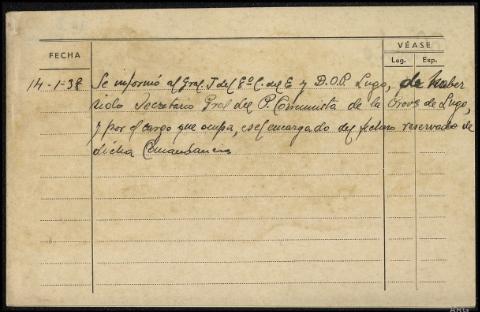 VÉASE
FECHA
Leg. Exp.
14-1-38 Se informó al Gral. J. del 8º C. del E. y D.O.P. Lugo, de haber
sido Secretario Gral del P. Comunista de la Prov. de Lugo,
y por el cargo que ocupa, es el encargado del fichero reservado de
dicha Comandancia